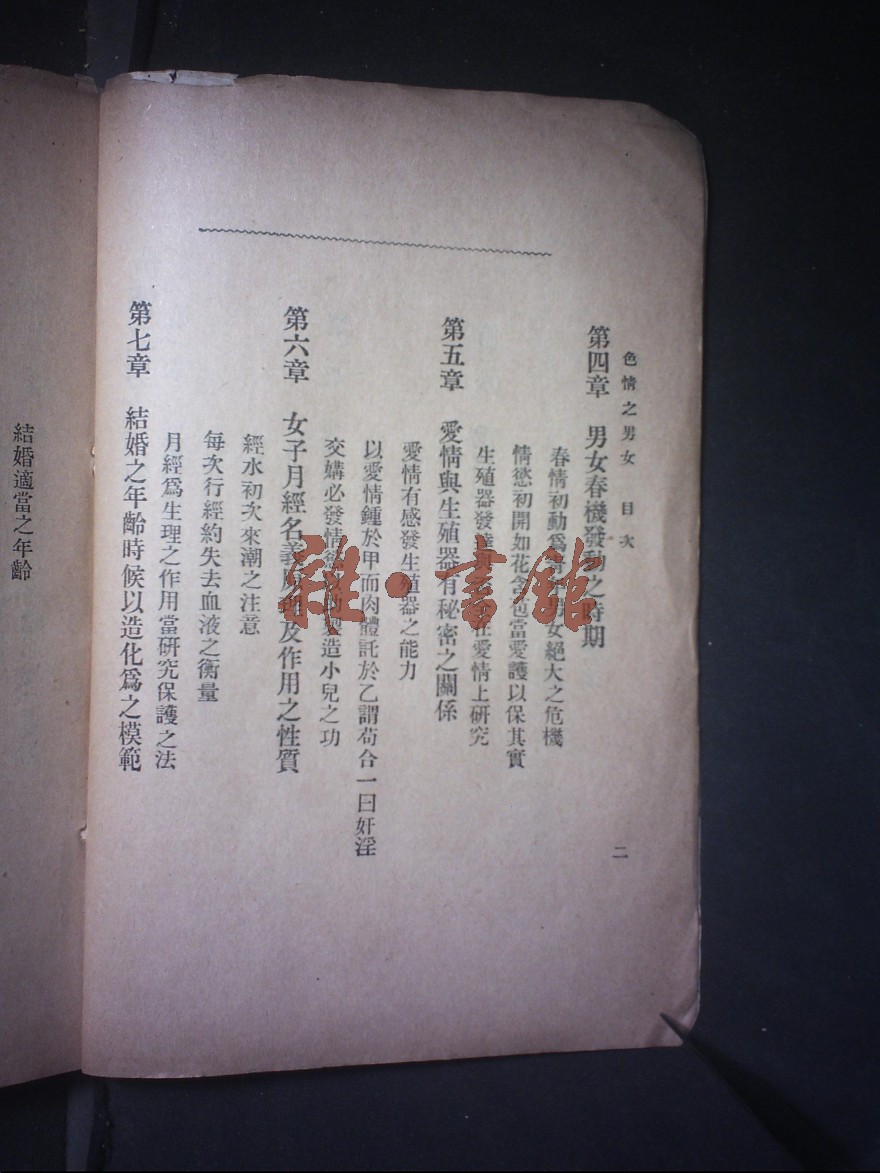 色情之男女 目次
二
第四章 男女春機發動之時期
春情初動為 男女絕大之危機
情慾初開如花含苞當愛護以保其實
生殖器發達 在愛情上研究
第五章 愛情與生殖器有秘密之關係
愛情有感發生殖器之能力
以愛情鍾於甲而肉體託於乙謂苟合一曰奸淫
交媾必發情慾 造小兒之功
第六章 女子月經名義 理及作用之性質
經水初次來潮之注意
每次行經約失去血液之衡量
月經為生理之作用當研究保護之法
第七章 結婚之年齡時候以造化為之模範
結婚適當之年齡
雜·書館